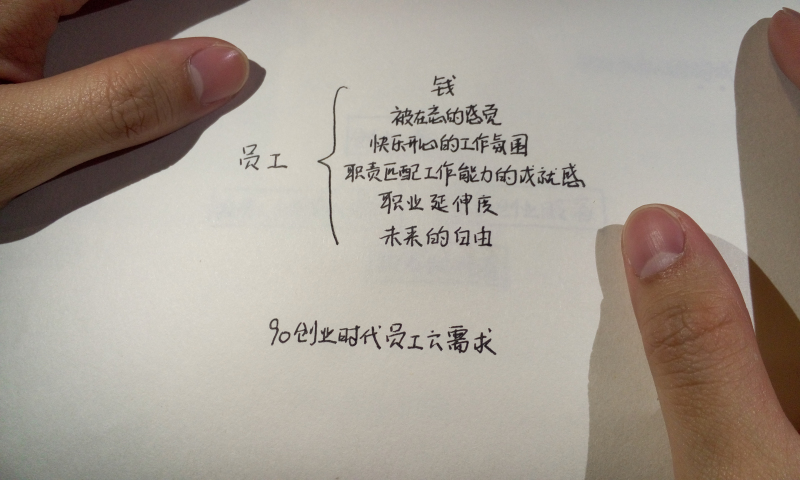 钱
被在意的感觉
快乐开心的工作氛围
员工
职责匹配工作能力的成就感
职业延伸度
未来的自由
90创业时代员工云需求